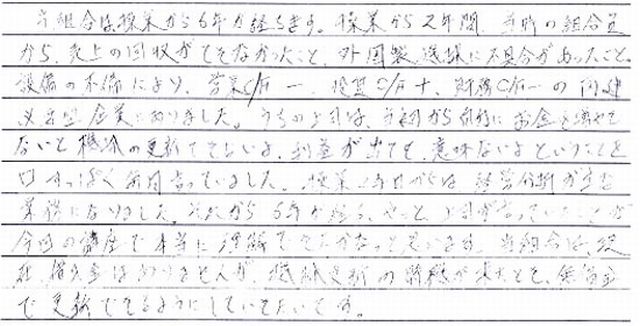 当組合は操業から6年が経ちます。操業から2年間、当時の組合員
から、売上の回収ができなかったこと、外国製選球に不具合があったこと、
設備の不備により、営業C/F 一、投資C/F 十、財務C/F 一の
企業にありました。うちの上司は、当初から お金を増やせ
ないと機械の更新できないよ、利益が出ても、意味ないよということを
口すっぱく毎日言っていました。操業 年目からは 経営分析が
業務になりました。それから6年が経ち、やっと、上司が言っていたことが
今回の講座で本当に理解できたかなっと思います。当組合は、現
在、借入金はありませんが、機械更新の時機が来たとき、無借金
で更新できるようにしていきたいです。